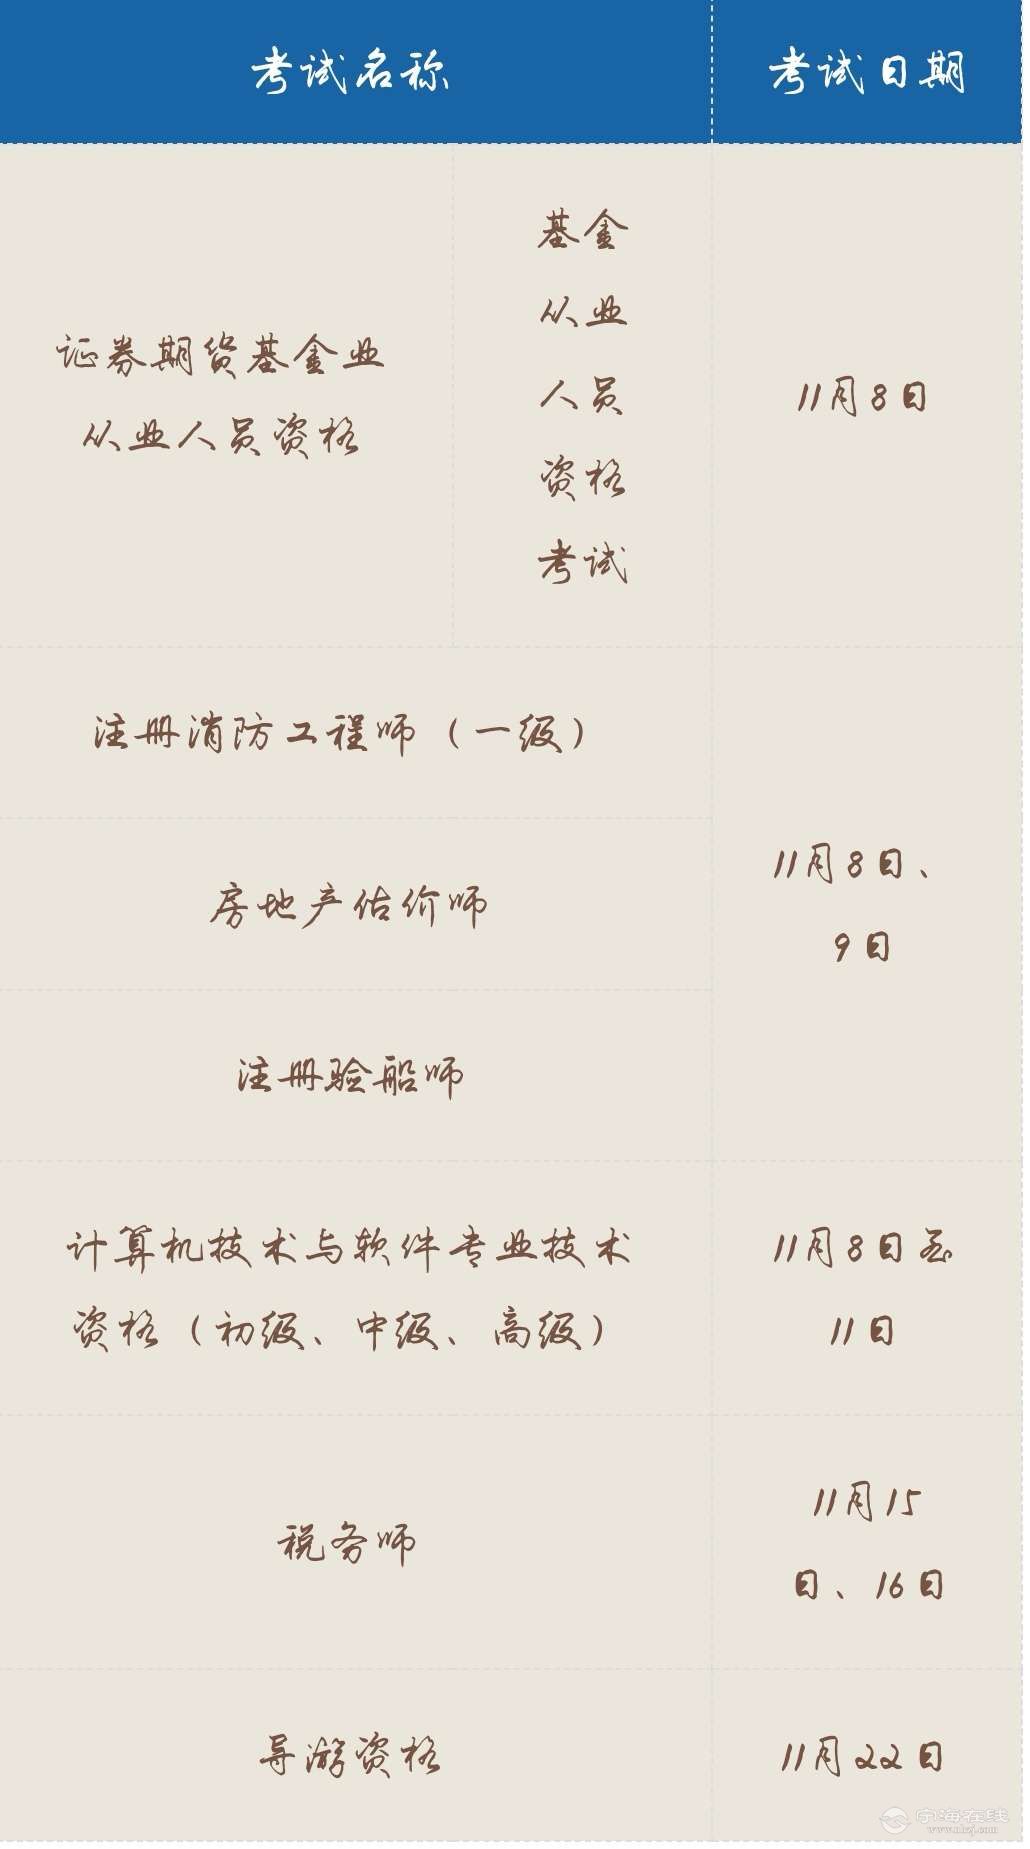 考试名称
考试日期
证券期货基金业
从业人员资格
基金
从业
人员
资格
考试
11月8日
注册消防工程师（一级）
房地产估价师
注册验船师
11月8日、
9日
计算机技术与软件专业技术
资格（初级、中级、高级）
11月8日至
11日
税务师
11月15
日、16日
导游资格
11月22日
宁海在线